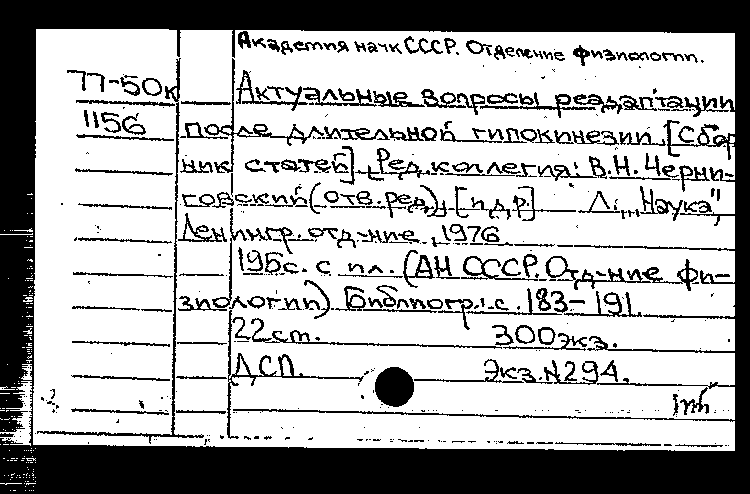 Академия наук СССР. Отделение физиологии.
77-50к Актуальные вопросы реадаптации
1156 после длительной гипокинезии. [Сбор
ник статей]. Ред.коллегия: В.Н. Черни-
говский (отв.ред), [и др.] Л., "Наука",
Ленингр. отд-ние, 1976.
195с. с ил. (АН СССР. Отд-ние фи-
зиологии). Библиогр.: с. 183-191.
22см. 300экз.
ДСП. Экз. N294.